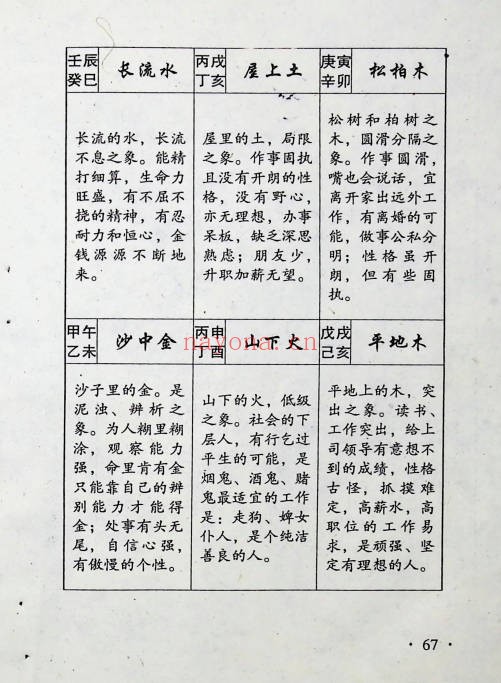 壬辰
癸巳
长流水
长流的水，长流
不息之象。能精
打细算，生命力
旺盛，有不屈不
挠的精神，有忍
耐力和恒心，金
钱源源不断地
来。
丙戌
丁亥
屋上土
屋里的土，局限
之象。作事固执
且没有开朗的性
格，没有野心，
亦无理想，办事
呆板，缺乏深思
熟虑；朋友少，
升职加薪无望。
庚寅
辛卯
松柏木
松树和柏树之
木，圆滑分隔之
象。作事圆滑，
嘴也会说话，宜
离开家出远外工
作，有离婚的可
能，做事公私分
明；性格虽开
朗，但有些固
执。
甲午
乙未
沙中金
沙子里的金。是
泥浊、辨析之
象。为人糊里糊
涂，观察能力
强，命里肯有金
只能靠自己的辨
别能力才能得
金；处事有头无
尾，自信心强，
有傲慢的个性。
丙申
丁酉
山下火
山下的火，低级
之象。社会的下
层人，有行乞过
平生的可能，是
烟鬼、酒鬼、赌
鬼最适宜的工作
是：走狗、婢女
仆人，是个纯洁
善良的人。
戊戌
己亥
平地木
平地上的木，突
出之象。读书、
工作突出，给上
司领导有意想不
到的成绩，性格
古怪，抓摸难
定，高薪水，高
职位的工作易
求，是顽强、坚
定有理想的人。
nayona.cn
·67·